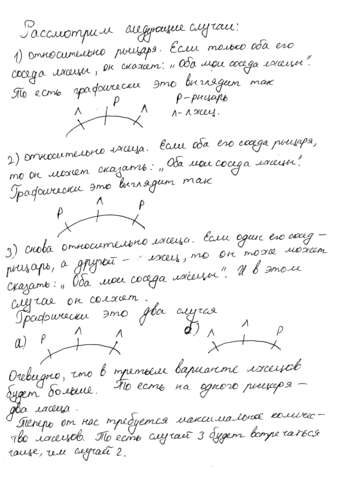 Рассмотрим следующие случаи:
1) относительно рыцаря. Если только оба его
соседа лжецы, он скажет: „Оба мои соседа лжецы".
То есть графически это выглядит так
Л Р Л Р-рыцарь
Л-лжец.
2) относительно лжеца. Если оба его соседа рыцаря,
то он может сказать: „Оба мои соседа лжецы".
Графически это выглядит так
Р Л Р
3) снова относительно лжеца. Если один его сосед-
рыцарь, а другой - лжец, то он тоже может
сказать: „Оба мои соседа лжецы". И в этом
случае он солжет.
Графически это два случая
а) Р Л Л б) Л Л Р
Очевидно, что в третьем варианте лжецов
будет больше. То есть на одного рыцаря -
два лжеца.
Теперь от нас требуется максимальное количес-
тво лжецов. То есть случай 3 будет встречаться
чаще, чем случай 2.